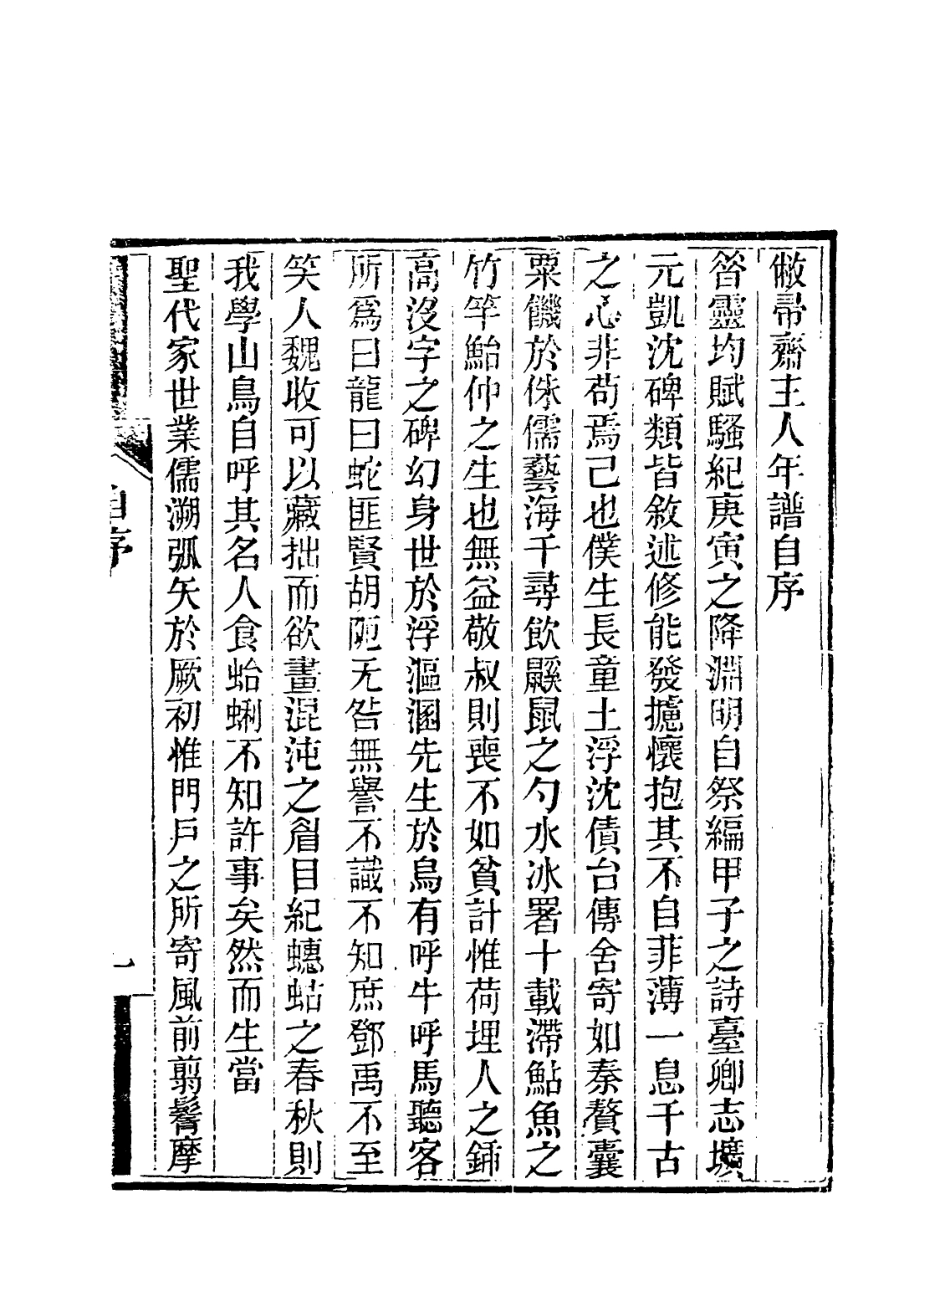 敝帚齋主人年譜自序
昝靈均賦騷紀庚寅之降淵明自祭編甲子之詩臺卿志壙
元凱沈碑類皆敘述修能發攄懷抱其不自菲薄一息千古
之心非苟焉己也僕生長童土浮沈債台傳舍寄如秦贅囊
粟饑於侏儒藝海千尋飲鼷鼠之勺水冰署十載滯鮎魚之
竹竿鮐仲之生也無益敬叔則喪不如貧計惟荷埋人之鍤
高沒字之碑幻身世於浮漚溷先生於烏有呼牛呼馬聽客
所爲曰龍曰蛇匪賢胡陋无咎無譽不識不知庶鄧禹不至
笑人魏收可以藏拙而欲畫混沌之眉目紀蟪蛄之春秋則
我學山鳥自呼其名人食蛤蜊不知許事矣然而生當
聖代家世業儒溯弧矢於厥初惟門戶之所寄風前翦鬌摩
自序
一